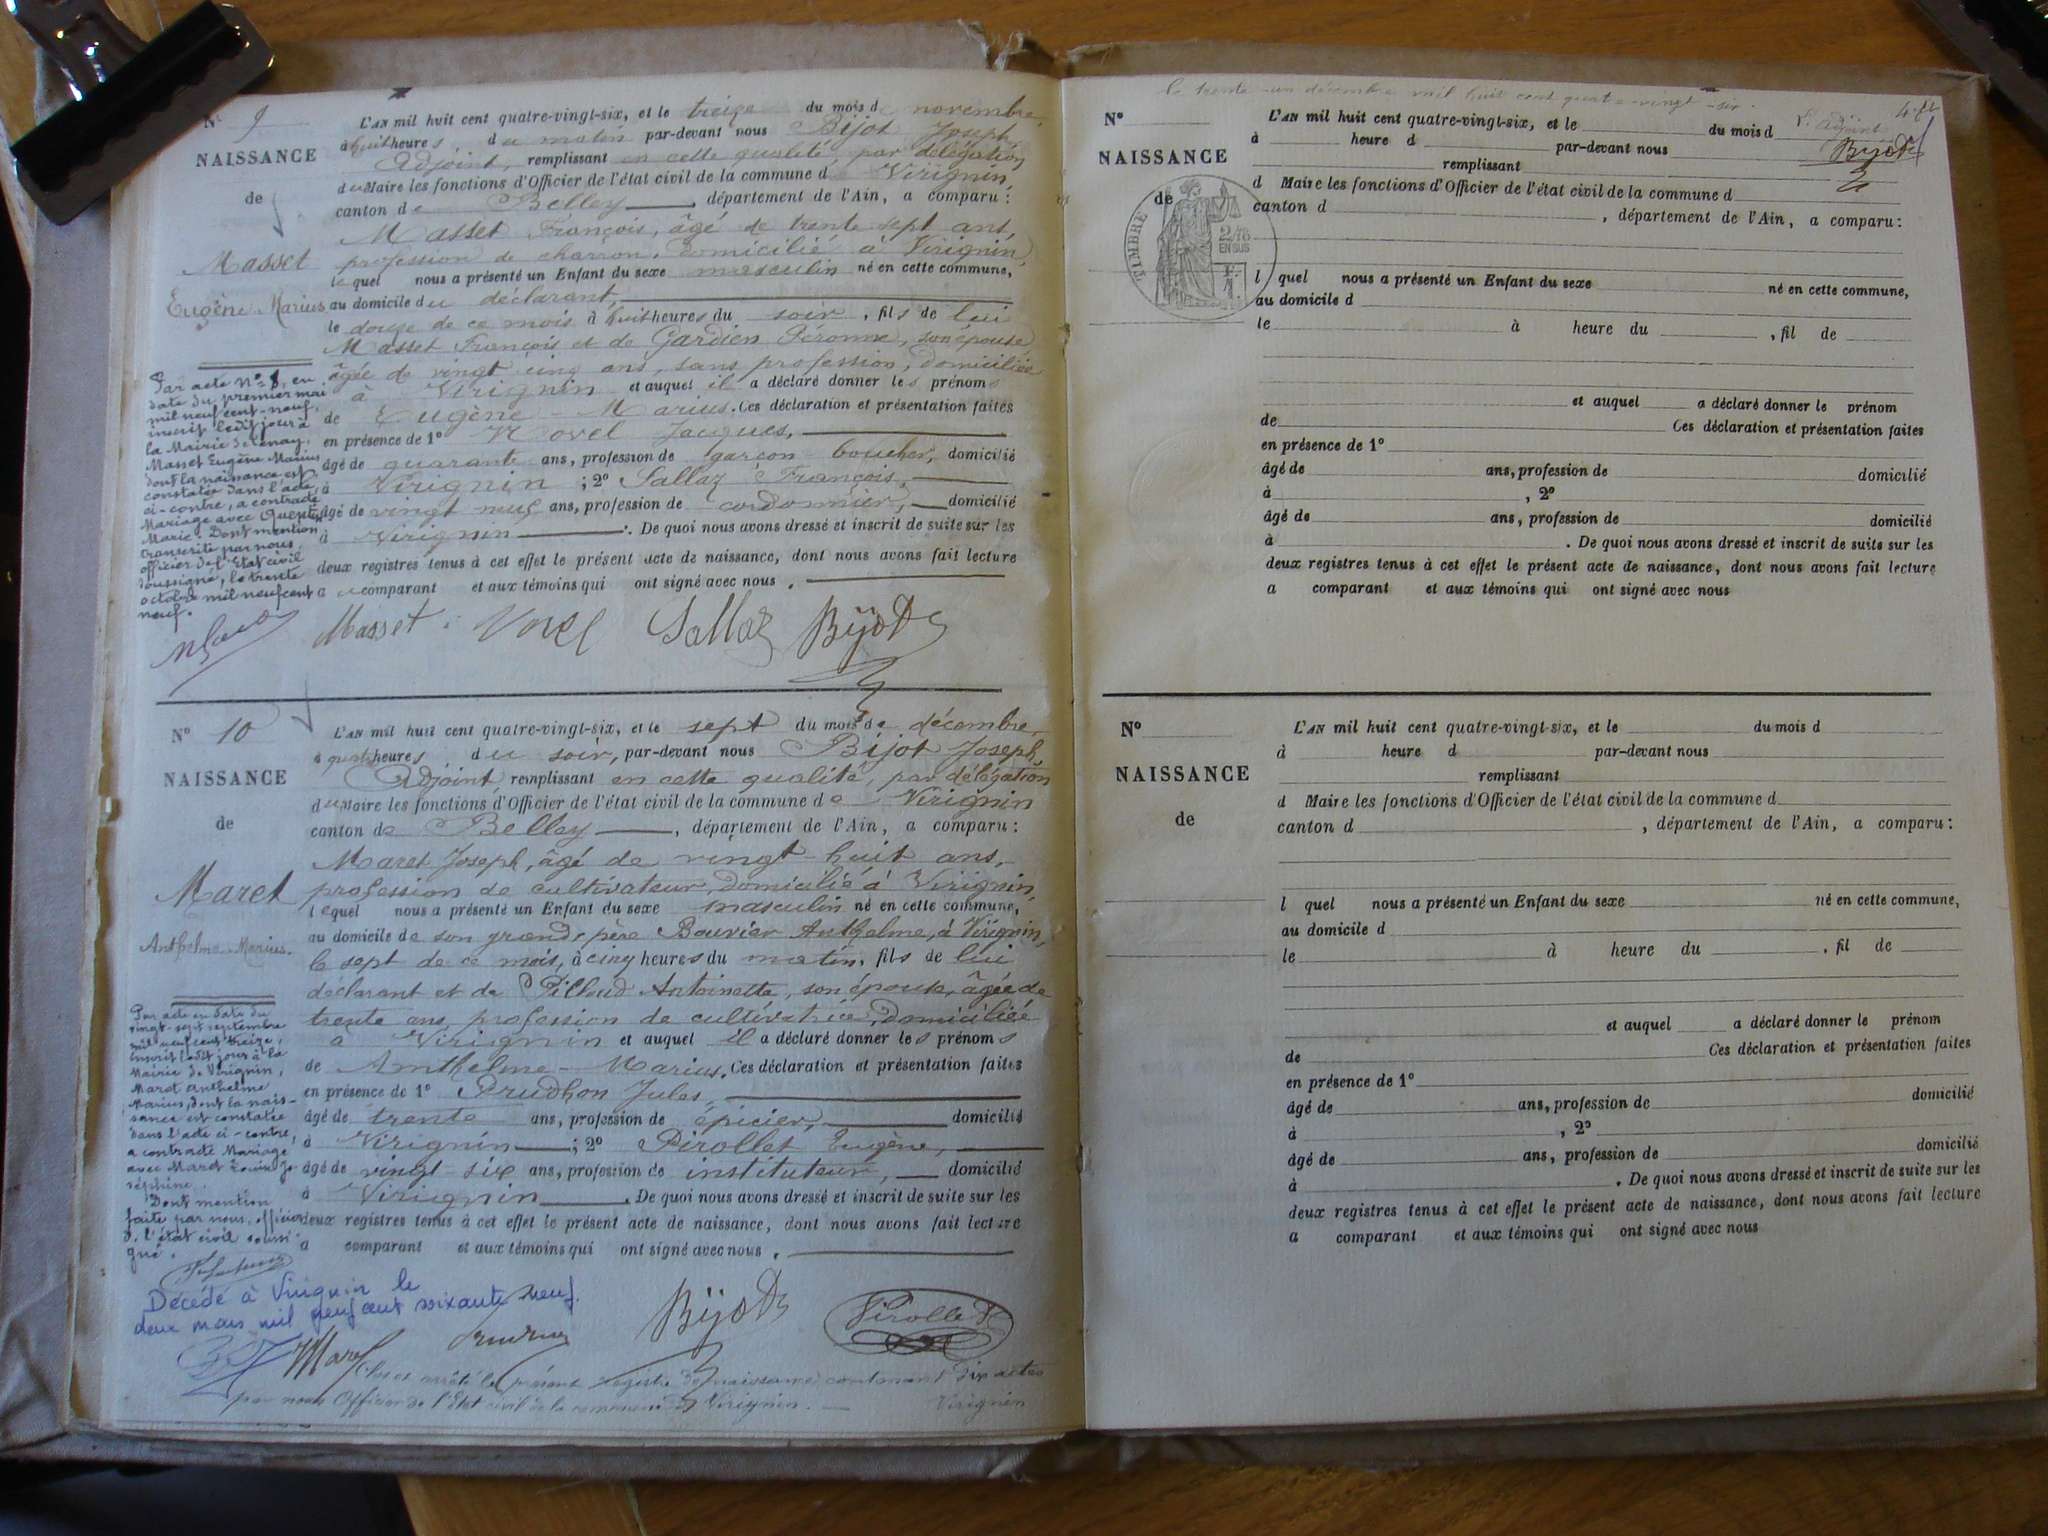 N° 9
NAISSANCE
de
Masset
Eugène-Marius
L'AN mil huit cent quatre-vingt-six, et le treize du mois de novembre,
à huit heures du matin par-devant nous Bijot Joseph,
Adjoint, remplissant en cette qualité, par délégation
du Maire les fonctions d'Officier de l'état civil de la commune de Virignin,
canton de Belley, département de l'Ain, a comparu :
Masset François, âgé de trente sept ans,
profession de charron, domicilié à Virignin,
lequel nous a présenté un Enfant du sexe masculin né en cette commune,
au domicile du déclarant,
le douze de ce mois à huit heures du soir, fils de lui
Masset François et de Gardien Péronne, son épouse
âgée de vingt cinq ans, sans profession, domiciliée
à Virignin et auquel il a déclaré donner les prénoms
de Eugène-Marius. Ces déclaration et présentation faites
en présence de 1° Novel Jacques,
âgé de quarante ans, profession de garçon boucher, domicilié
à Virignin ; 2° Sallaz François,
âgé de vingt neuf ans, profession de cordonnier, domicilié
à Virignin. De quoi nous avons dressé et inscrit de suite sur les
deux registres tenus à cet effet le présent acte de naissance, dont nous avons fait lecture
au comparant et aux témoins qui ont signé avec nous.
Par acte N° 8, en
date du premier mai
mil neuf cent-neuf,
inscrit ledit jour à
la Mairie de
Masset Eugène Marius
dont la naissance est
constatée dans l'acte
ci-contre, a contracté
Mariage avec
Marie. Dont mention
transcrite par nous
officier de l'Etat civil
soussigné, le trente
octobre mil neuf cent
neuf.
Masset Novel Sallaz Bijot
N° 10
NAISSANCE
de
Maret
Anthelme-Marius.
L'AN mil huit cent quatre-vingt-six, et le sept du mois de décembre,
à quatre heures du soir, par-devant nous Bijot Joseph,
Adjoint, remplissant en cette qualité, par délégation
du Maire les fonctions d'Officier de l'état civil de la commune de Virignin
canton de Belley, département de l'Ain, a comparu :
Maret Joseph, âgé de vingt-huit ans,
profession de cultivateur, domicilié à Virignin,
lequel nous a présenté un Enfant du sexe masculin né en cette commune,
au domicile de son grand-père Bouvier Anthelme, à Virignin,
le sept de ce mois, à cinq heures du matin, fils de lui
déclarant et de Antoinette, son épouse, âgée de
trente ans, profession de cultivatrice, domiciliée
à Virignin et auquel il a déclaré donner les prénoms
de Anthelme-Marius. Ces déclaration et présentation faites
en présence de 1° Prudhon Jules,
âgé de trente ans, profession de épicier, domicilié
à Virignin ; 2° Pirollet Eugène,
âgé de vingt-six ans, profession de instituteur, domicilié
à Virignin. De quoi nous avons dressé et inscrit de suite sur les
deux registres tenus à cet effet le présent acte de naissance, dont nous avons fait lecture
a comparant et aux témoins qui ont signé avec nous.
Par acte en date du
vingt-sept septembre
mil neuf cent treize,
inscrit ledit jour à la
Mairie de Virignin,
Maret Anthelme
Marius, dont la nais-
sance est constatée
dans l'acte ci-contre,
a contracté Mariage
avec Maret Louise Jo-
séphine.
Dont mention
faite par nous, officier
de l'état civil soussi-
gné.
Décédé à Virignin le
deux mars mil neuf cent soixante neuf.
Maret Bijot Pirollet
Clos et arrêté le présent registre de naissance contenant dix actes
par nous Officier de l'Etat civil de la commune de Virignin.
Virignin
le trente-un décembre mil huit cent quatre-vingt-six.
L'Adjoint
Bijot
N°
NAISSANCE
de
TIMBRE
2/10
EN SUS
L'AN mil huit cent quatre-vingt-six, et le du mois d
à heure d par-devant nous
remplissant
d Maire les fonctions d'Officier de l'état civil de la commune d
canton d , département de l'Ain, a comparu :
l quel nous a présenté un Enfant du sexe né en cette commune,
au domicile d
le à heure du , fil de
et auquel a déclaré donner le prénom
de Ces déclaration et présentation faites
en présence de 1°
âgé de ans, profession de domicilié
à , 2°
âgé de ans, profession de domicilié
à . De quoi nous avons dressé et inscrit de suite sur les
deux registres tenus à cet effet le présent acte de naissance, dont nous avons fait lecture
a comparant et aux témoins qui ont signé avec nous
N°
NAISSANCE
de
L'AN mil huit cent quatre-vingt-six, et le du mois d
à heure d par-devant nous
remplissant
d Maire les fonctions d'Officier de l'état civil de la commune d
canton d , département de l'Ain, a comparu :
l quel nous a présenté un Enfant du sexe né en cette commune,
au domicile d
le à heure du , fil de
et auquel a déclaré donner le prénom
de Ces déclaration et présentation faites
en présence de 1°
âgé de ans, profession de domicilié
à , 2°
âgé de ans, profession de domicilié
à . De quoi nous avons dressé et inscrit de suite sur les
deux registres tenus à cet effet le présent acte de naissance, dont nous avons fait lecture
a comparant et aux témoins qui ont signé avec nous